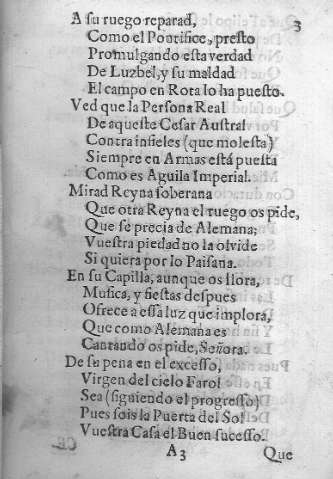 3
A su ruego reparad,
Como el Pontifice, presto
Promulgando esta verdad
De Luzbel, y su maldad
El campo en Rota lo ha puesto.
Ved que la Persona Real
De aqueste Cesar Austral
Contra infieles (que molesta)
Siempre en Armas está puesta
Como es Aguila Imperial.
Mirad Reyna soberana
Que otra Reyna el ruego os pide,
Que se precia de Alemana;
Vuestra piedad no la olvide
Si quiera por lo Paisana.
En su Capilla, aunque os llora,
Musica, y fiestas despues
Ofrece a essa luz que implora,
Que como Alemana es
Cantando os pide, Señora.
De su pena en el excesso,
Virgen del cielo Farol
Sea (siguiendo el progresso)
Pues sois la Puerta del Sol
Vuestra Casa el Buen sucesso.
A3 Que